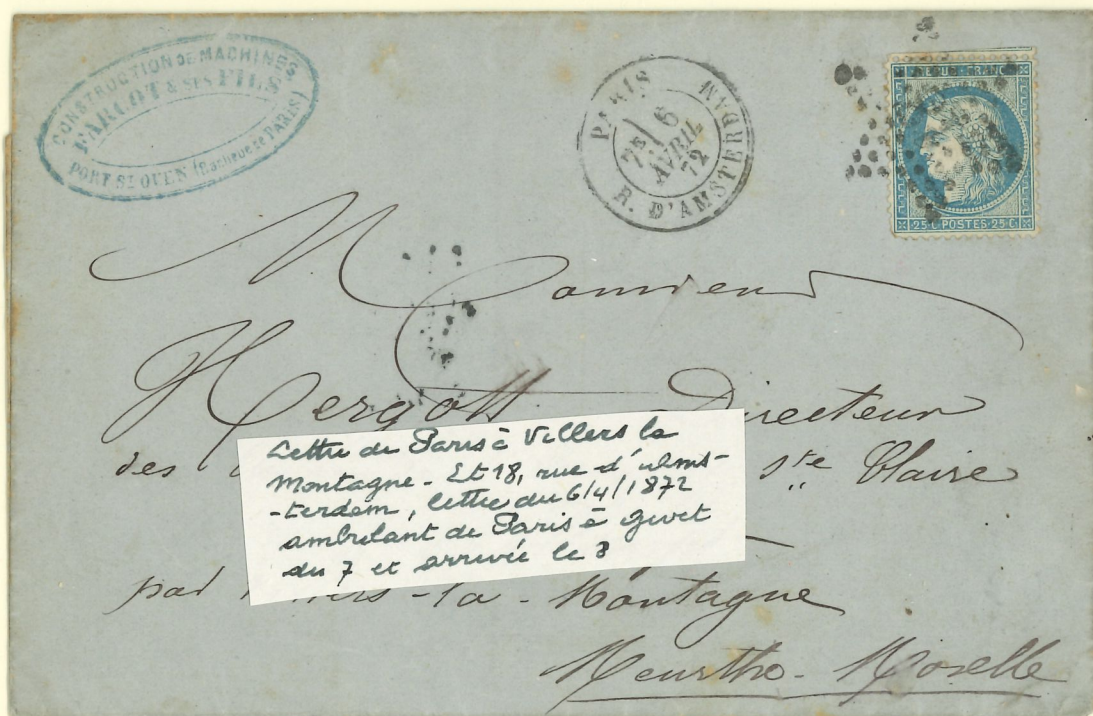 CONSTRUCTION DE MACHINES
FARCOT & SES FILS
PORT St OUEN (Banlieue de PARIS)
PARIS
7E 6
AVRIL
72
R. D'AMSTERDAM
REPUB. FRANC.
25 C. POSTES 25 C.
Monsieur
Hergott Directeur
des Ste Claire
Lettre de Paris à Villers la
Montagne - Et 18, rue d'Ams-
-terdam, lettre du 6/4/1872
ambulant de Paris à Givet
du 7 et arrivée le 8
par Villers-la-Montagne
Meurthe-Moselle